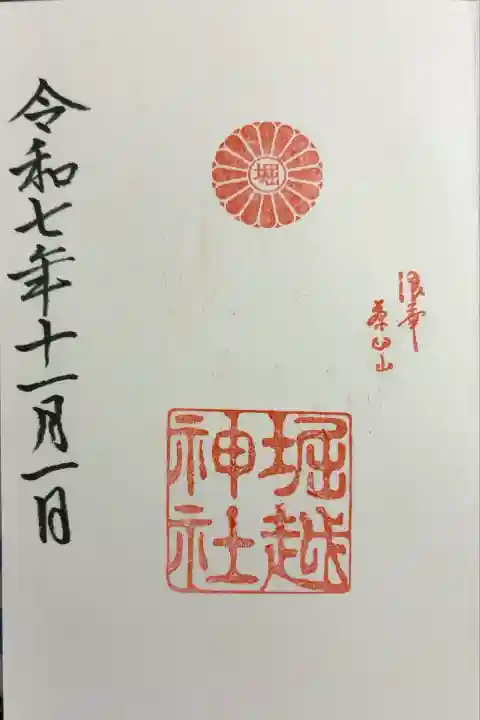 堀
浪華
茶臼山
堀越
神社
令和七年十一月一日